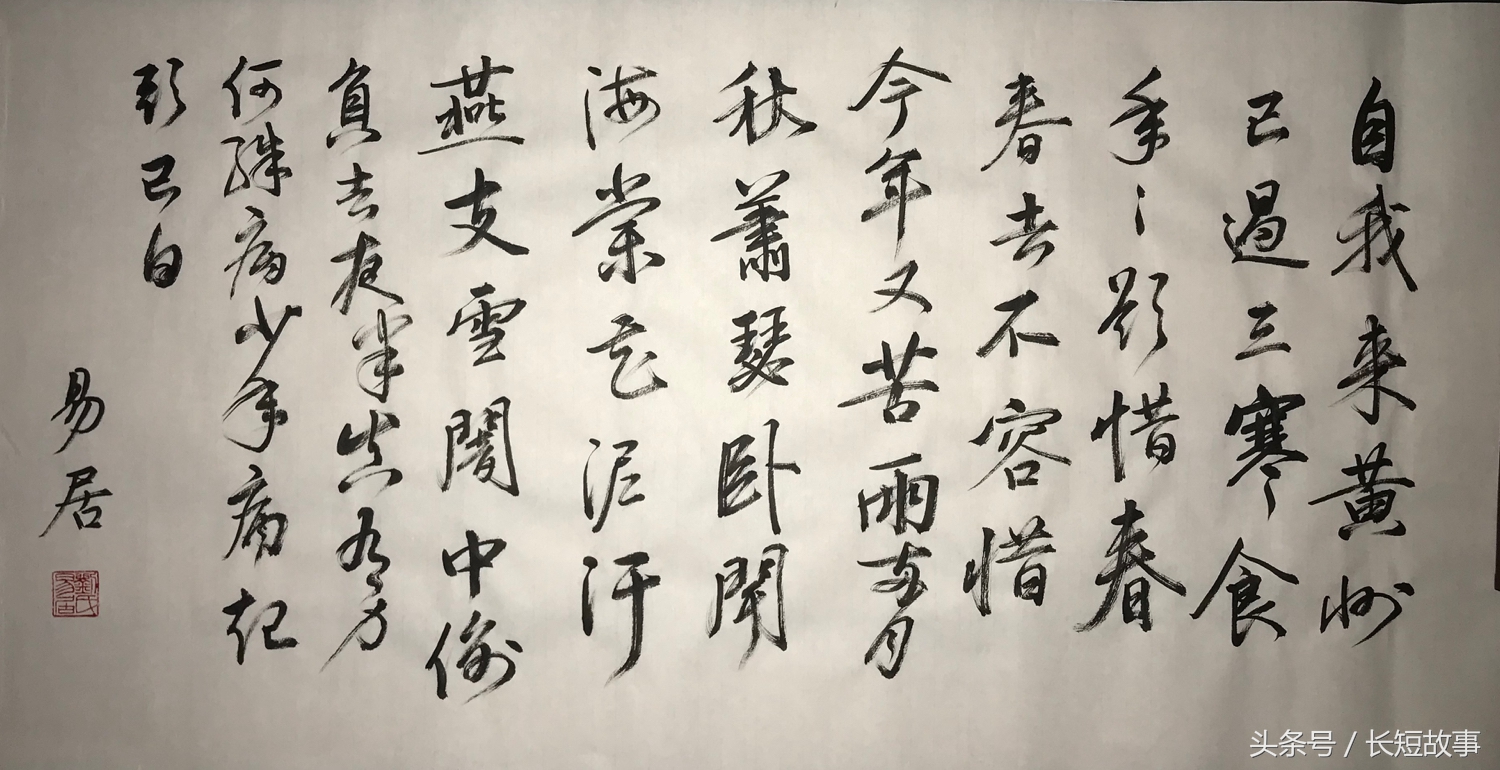 自我来黄州
已過三寒食
年〻欲惜春
春去不容惜
今年又苦雨兩月
秋蕭瑟卧聞
海棠花泥汙
燕支雪闇中偷
負去夜半真有力
何殊病少年病起
頭已白
易居
头条号 / 长短故事